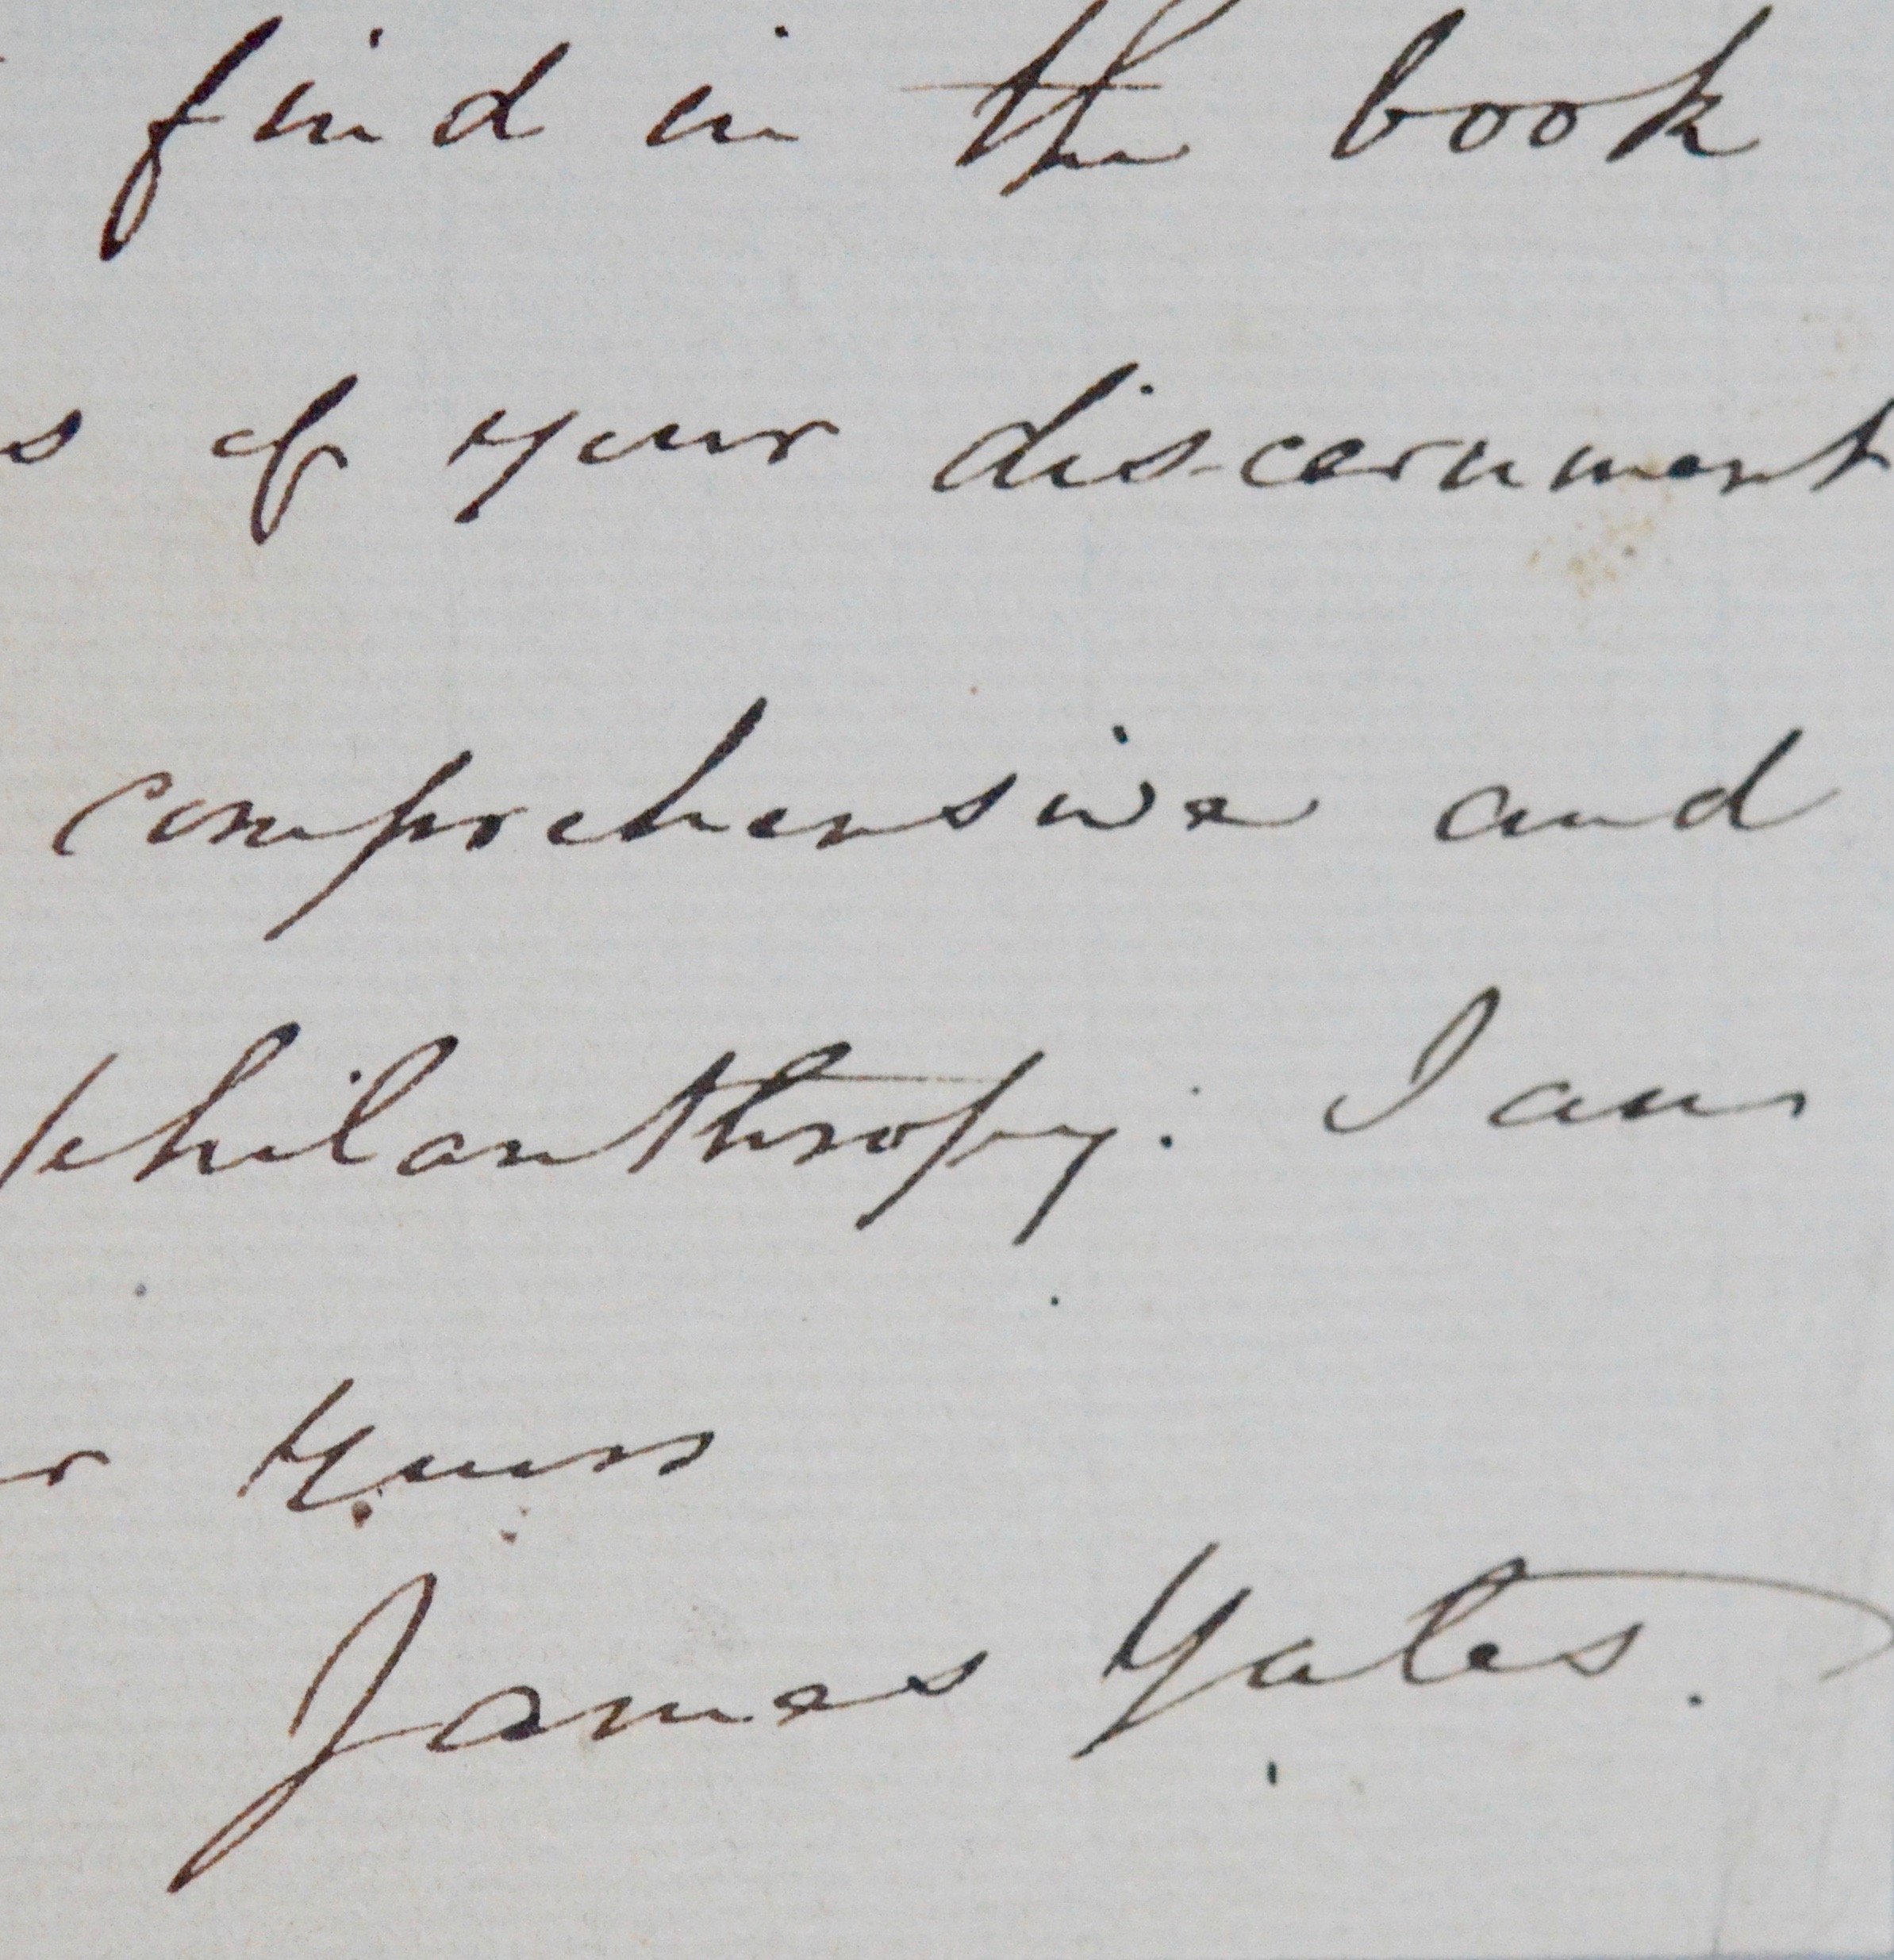 find in the book
s of your discernment
comprehensive and
philanthropy: I am
r yours
James Yates.